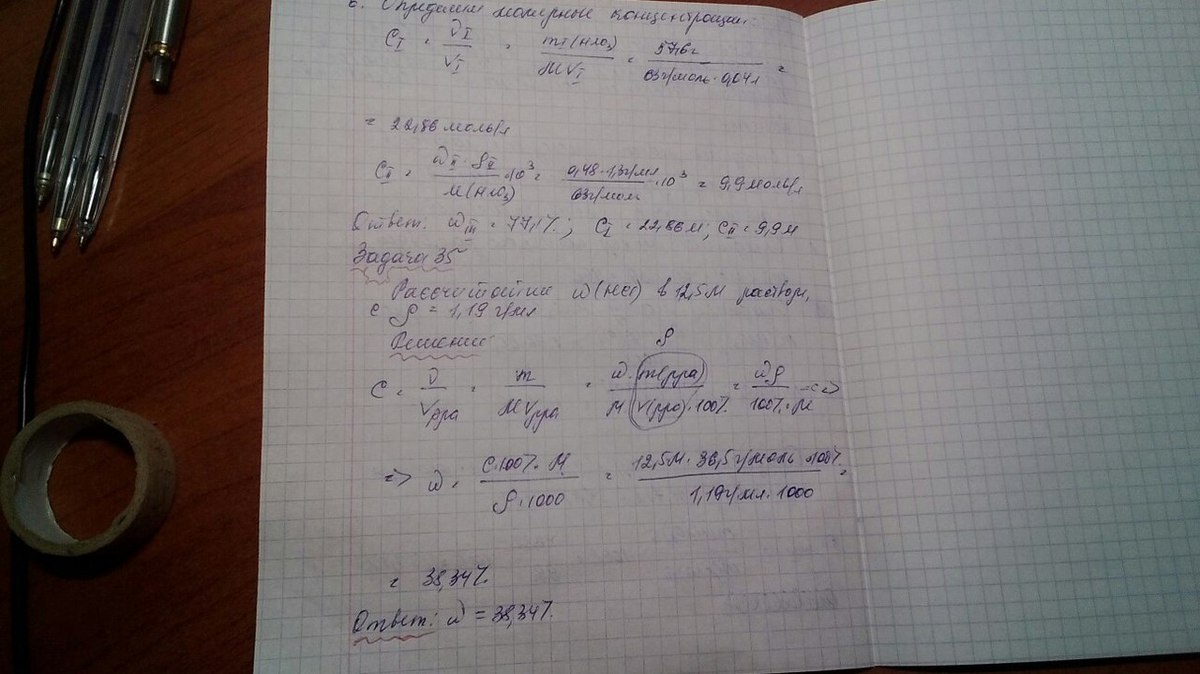 6. Определим молярные концентрации:
C_I = ν_I / V_I = m_I(HNO₃) / M V_I = 57,6г / 63г/моль · 0,04л =
= 22,86 моль/л
C_II = ω_II · ρ_II / M(HNO₃) · 10³ = 0,48 · 1,3г/мл / 63г/моль · 10³ = 9,9 моль/л
Ответ: ω_III = 77,1%; C_I = 22,86М; C_II = 9,9М
Задача 35
Рассчитайте ω(HCl) в 12,5М растворе,
с ρ = 1,19 г/мл
Решение:
ρ
C = ν / V рра = m / M V рра = ω · m(рра) / M V(рра) · 100% = ωρ / 100% · M =>
=> ω = C · 100% · M / ρ · 1000 = 12,5М · 36,5г/моль · 100% / 1,19г/мл · 1000 =
= 38,34%
Ответ: ω = 38,34%